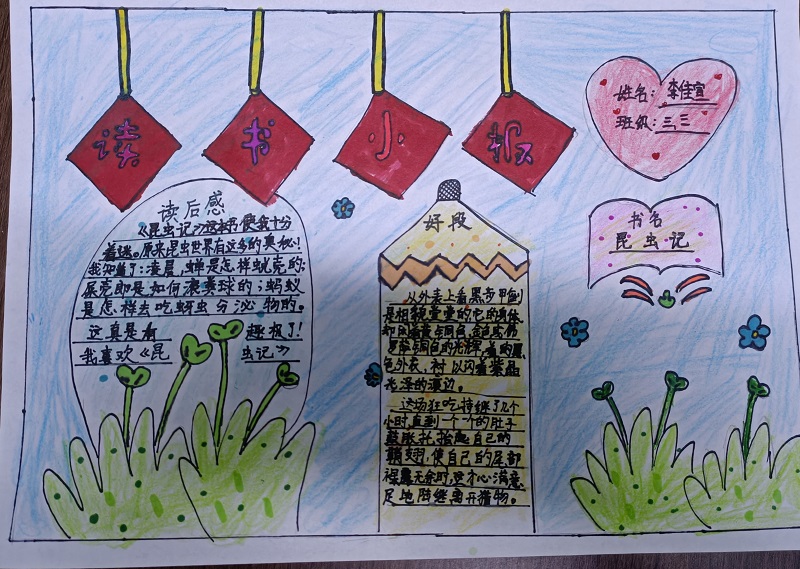 读书小报
姓名：李佳宣
班级：三、三
书名
昆虫记
读后感
《昆虫记》这本书使我十分
着迷。原来昆虫世界有这多的奥秘！
我知道了：凌晨，蝉是怎样蜕壳的；
屎壳郎是如何滚粪球的；蚂蚁
是怎样去吃蚜虫分泌物的。
这真是有趣极了！
我喜欢《昆虫记》
好段
从外表上看黑步甲
是相貌堂堂的，它的身体
却闪着黄
的光辉，着的黑
色外衣，衬以闪着紫晶
光泽的濂边。
这场狂吃持续了几个
小时，直到一个个的肚子
鼓胀托抬起自己的
鞘翅，使自己的尾部
裸露无余时，更才心满意
足地陆继离开猎物。